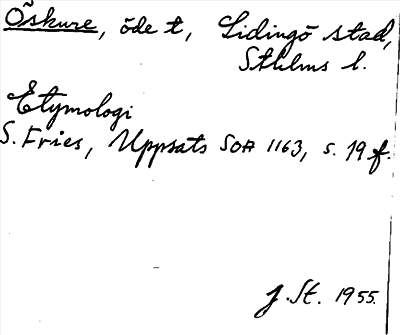 Öskure, öde t, Lidingö stad,
Sthlms l.
Etymologi
S. Fries, Uppsats SOA 1163, s. 19 f.
J. St. 1955.